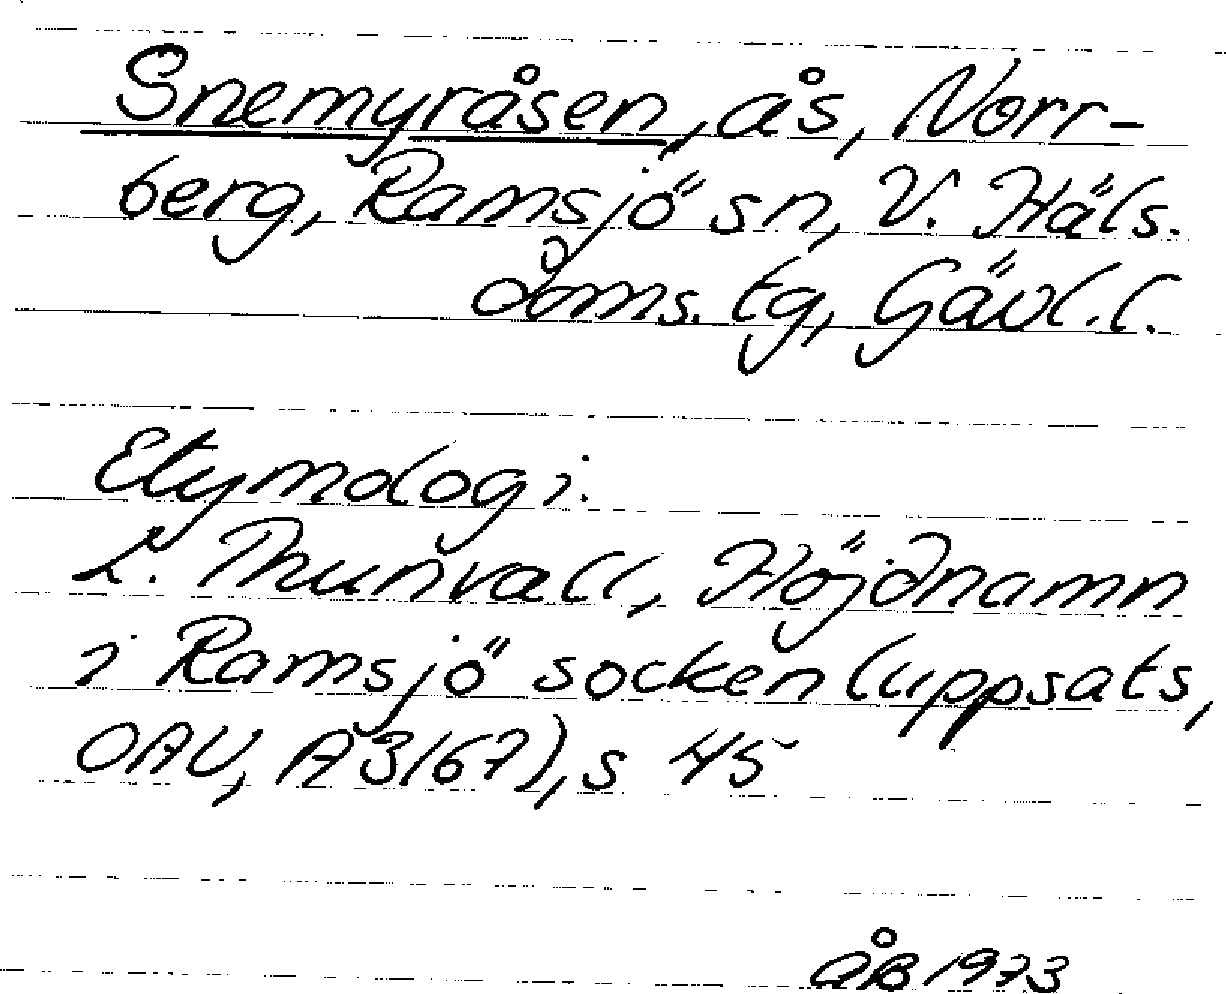 Snemyråsen, ås, Norr-
berg, Ramsjö sn, V. Häls.
doms. tg, Gävl. l.
Etymologi.
L. Thunvall, Höjdnamn
i Ramsjö socken (uppsats,
OAU, A3/67), s 45
ÅB 1973